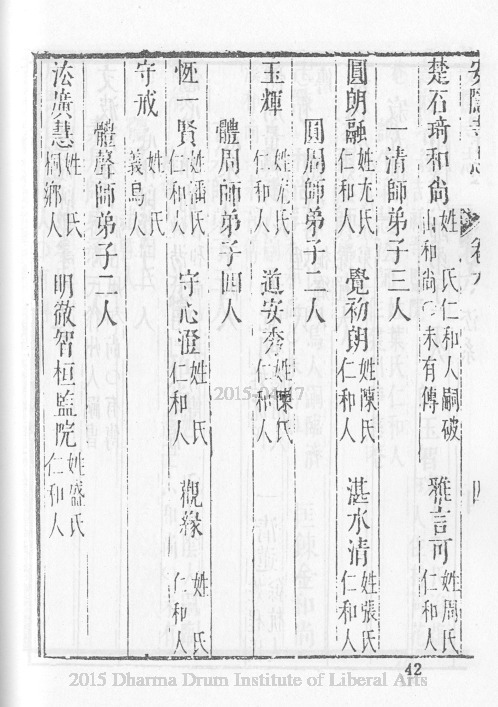 楚石琦和尚姓 氏仁和人嗣破山和尚○未有傳 雅言可姓周氏仁和人
一清師弟子三人
圓朗融姓尤氏仁和人 覺初朗姓陳氏仁和人 湛水清姓張氏仁和人
圓周師弟子二人
玉輝姓尤氏仁和人 道安秀姓陳氏仁和人
體周師弟子四人
一賢姓潘氏仁和人 守心涯姓 氏仁和人 觀緣姓 氏仁和人
守戒姓 氏義烏人
體聲師弟子二人
法廣慧姓 氏桐鄉人 明徹智桓監院姓盛氏仁和人
42
2015-04-17
2015 Dharma Drum Institute of Liberal Arts